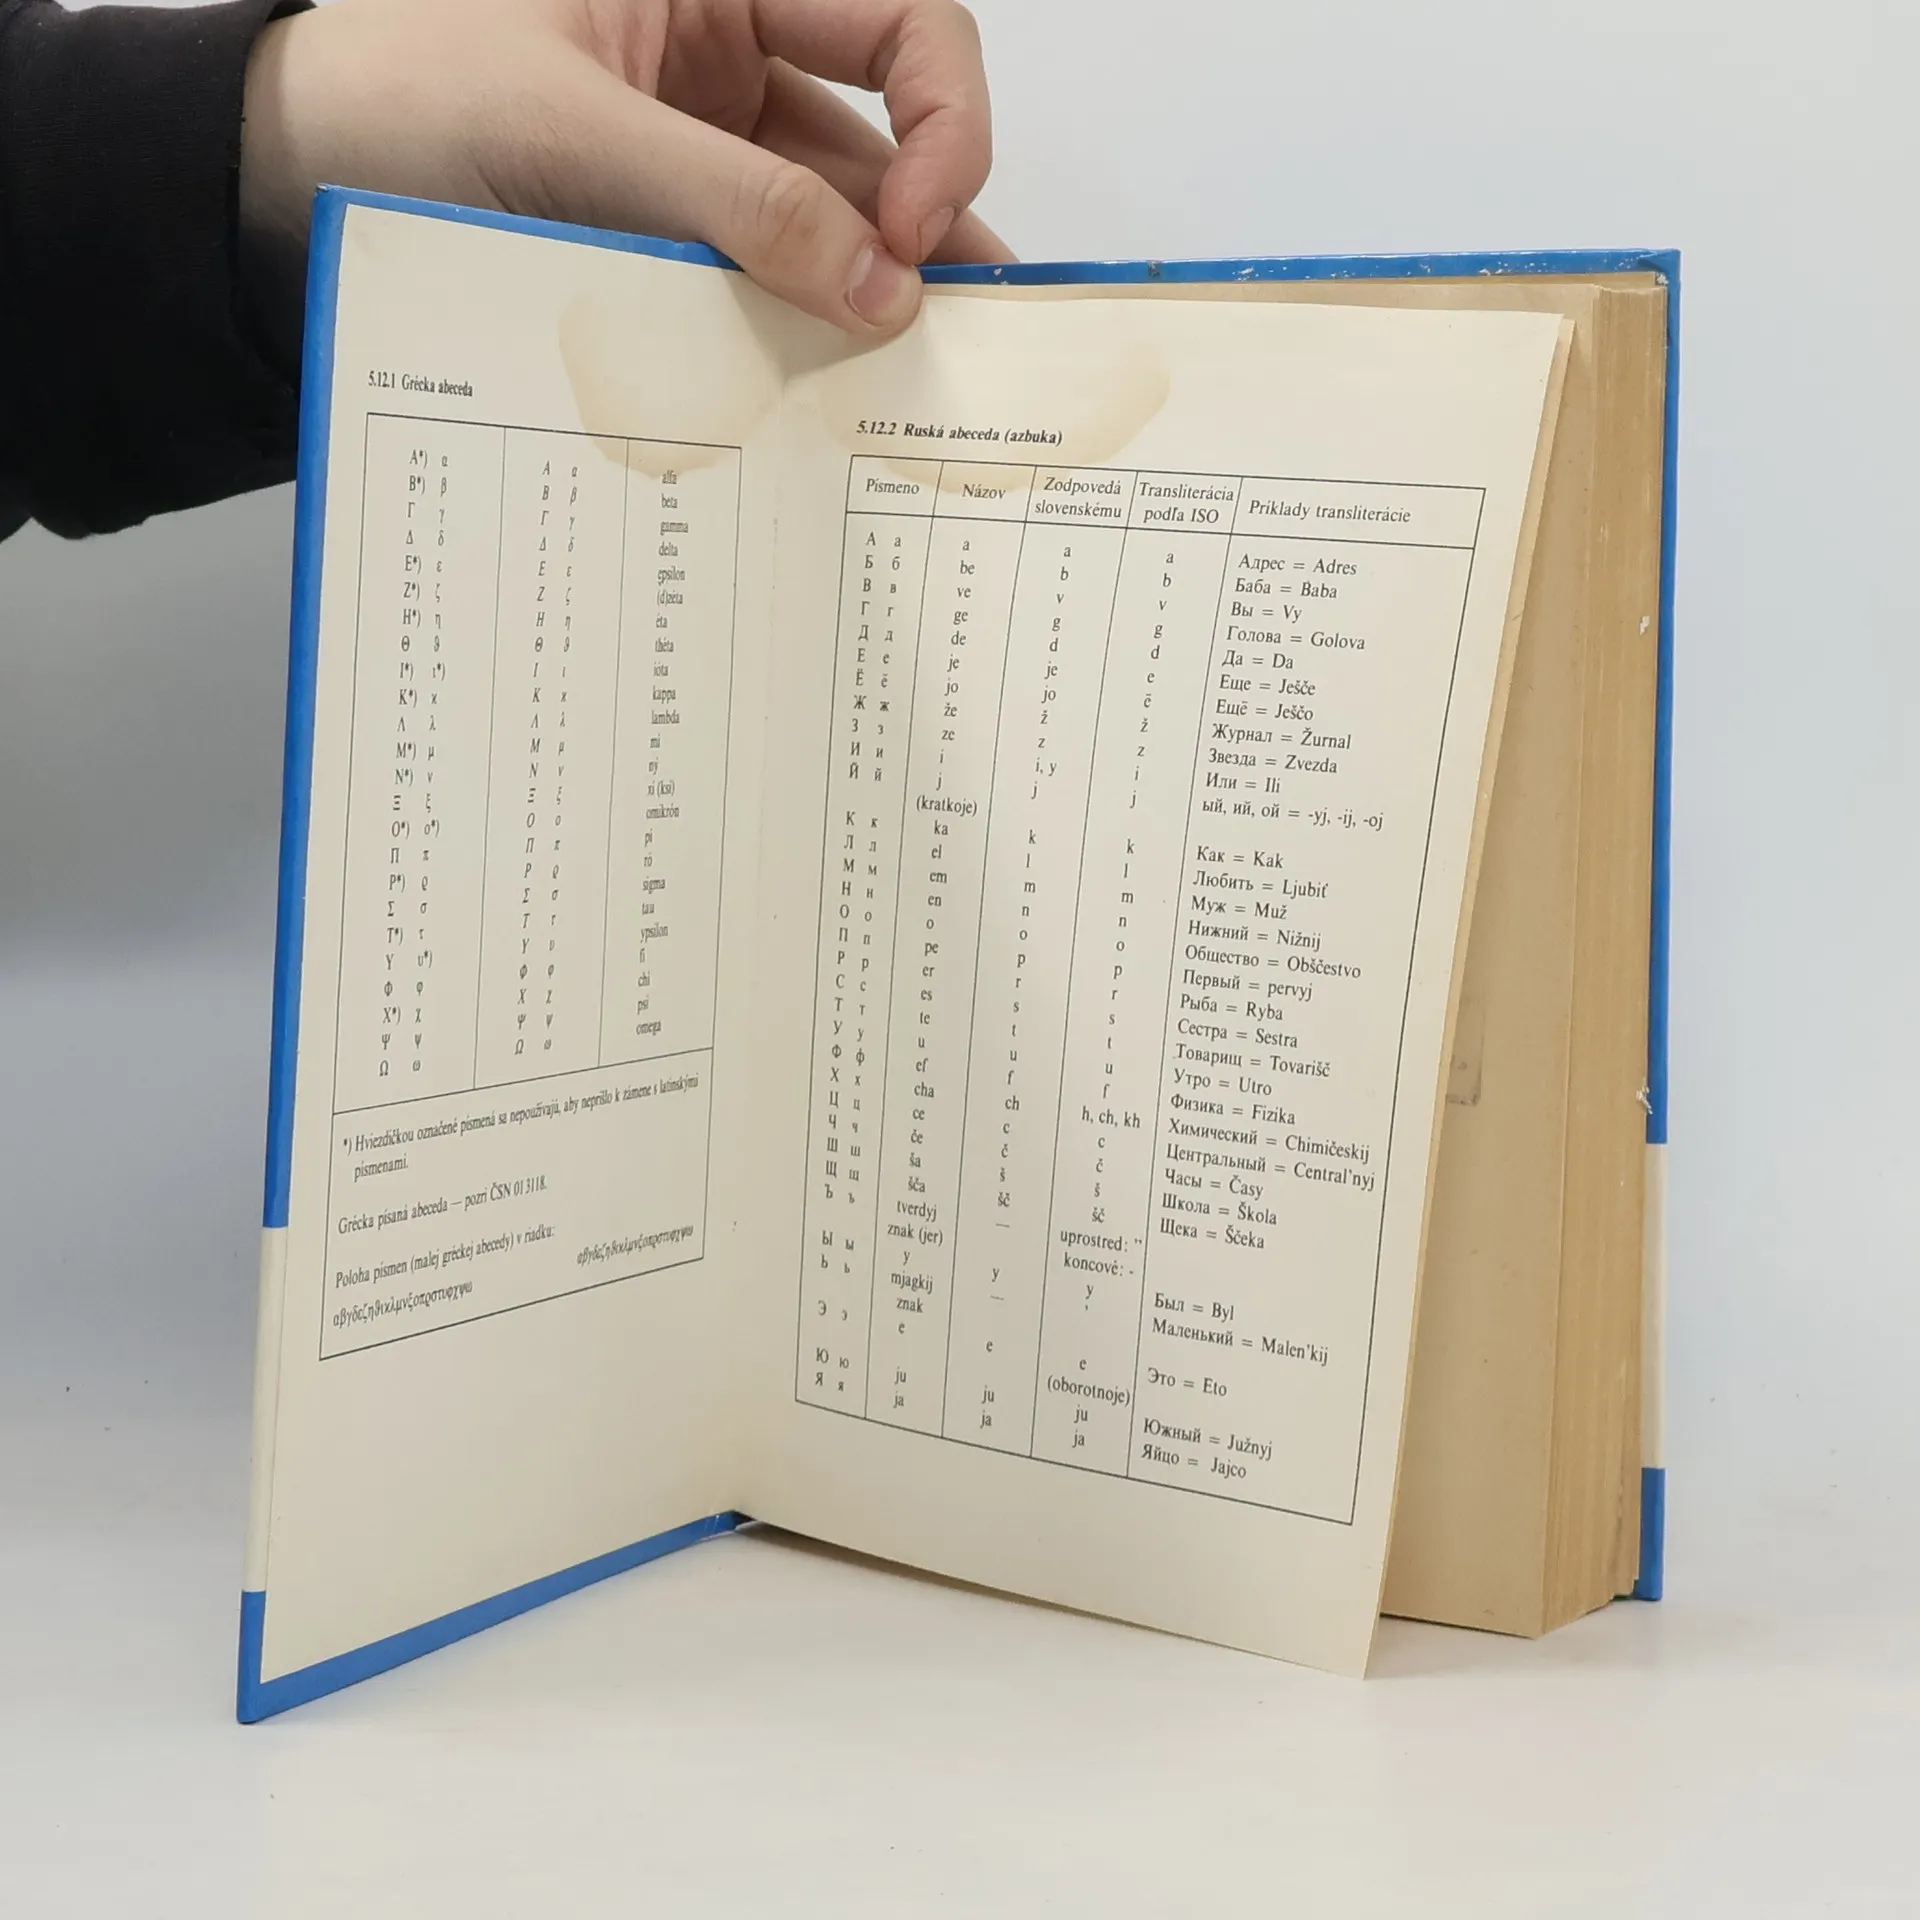 5.12.1 Grécka abeceda
A*) α A α alfa
B*) β B β beta
Γ γ Γ γ gamma
Δ δ Δ δ delta
E*) ε E ε epsilon
Z*) ζ Z ζ (d)zéta
H*) η H η éta
Θ ϑ Θ ϑ théta
I*) ι*) I ι ióta
K*) ϰ K ϰ kappa
Λ λ Λ λ lambda
M*) μ M μ mí
N*) ν N ν ný
Ξ ξ Ξ ξ xí (ksí)
O*) o*) O o omikrón
Π π Π π pí
P*) ϱ P ϱ ró
Σ σ Σ σ sigma
T*) τ T τ tau
Υ υ*) Υ υ ypsilon
Φ φ Φ φ fí
X*) χ X χ chí
Ψ ψ Ψ ψ psí
Ω ω Ω ω omega
*) Hviezdičkou označené písmená sa nepoužívajú, aby neprišlo k zámene s latinskými
písmenami.
Grécka písaná abeceda — pozri ČSN 01 3118.
Poloha písmen (malej gréckej abecedy) v riadku:
αβγδεζηϑικλμνξοπϱστυφχψω αβγδεζηϑικλμνξοπϱστυφχψω
5.12.2 Ruská abeceda (azbuka)
Písmeno Názov Zodpovedá slovenskému Transliterácia podľa ISO Príklady transliterácie
А а a a a Адрес = Adres
Б б be b b Баба = Baba
В в ve v v Вы = Vy
Г г ge g g Голова = Golova
Д д de d d Да = Da
Е е je je e Еще = Ješče
Ё ё jo jo ë Ещё = Ješčo
Ж ж že ž ž Журнал = Žurnal
З з ze z z Звезда = Zvezda
И и i i, y i Или = Ili
Й й j j j ый, ий, ой = -yj, -ij, -oj
(kratkoje)
К к ka k k Как = Kak
Л л el l l Любить = Ljubiť
М м em m m Муж = Muž
Н н en n n Нижний = Nižnij
О о o o o Общество = Obščestvo
П п pe p p Первый = pervyj
Р р er r r Рыба = Ryba
С с es s s Сестра = Sestra
Т т te t t Товарищ = Tovarišč
У у u u u Утро = Utro
Ф ф ef f f Физика = Fizika
Х х cha ch h, ch, kh Химический = Chimičeskij
Ц ц ce c c Центральный = Central'nyj
Ч ч če č č Часы = Časy
Ш ш ša š š Школа = Škola
Щ щ šča šč šč Щека = Ščeka
Ъ ъ tverdyj — uprostred: ”
znak (jer) koncové: -
Ы ы y y y Был = Byl
Ь ь mjagkij — ' Маленький = Malen'kij
znak
Э э e e e Это = Eto
(oborotnoje)
Ю ю ju ju ju Южный = Južnyj
Я я ja ja ja Яйцо = Jajco